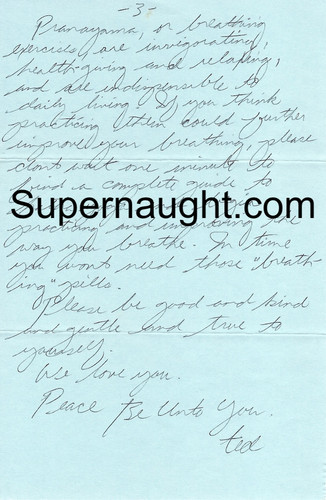 -3-
Pranayama, or breathing
exercises are invigorating,
health-giving and relaxing,
and are indispensible to
daily living. If you think
practicing them could further
improve your breathing, please
dont wait one minute to
find a complete guide to
Supernaught.com
practicing and improving the
way you breathe. In time
you wont need those "breath-
ing" pills.
Please be good and kind
and gentle and true to
yourself.
We love you.
Peace Be Unto You.
ted